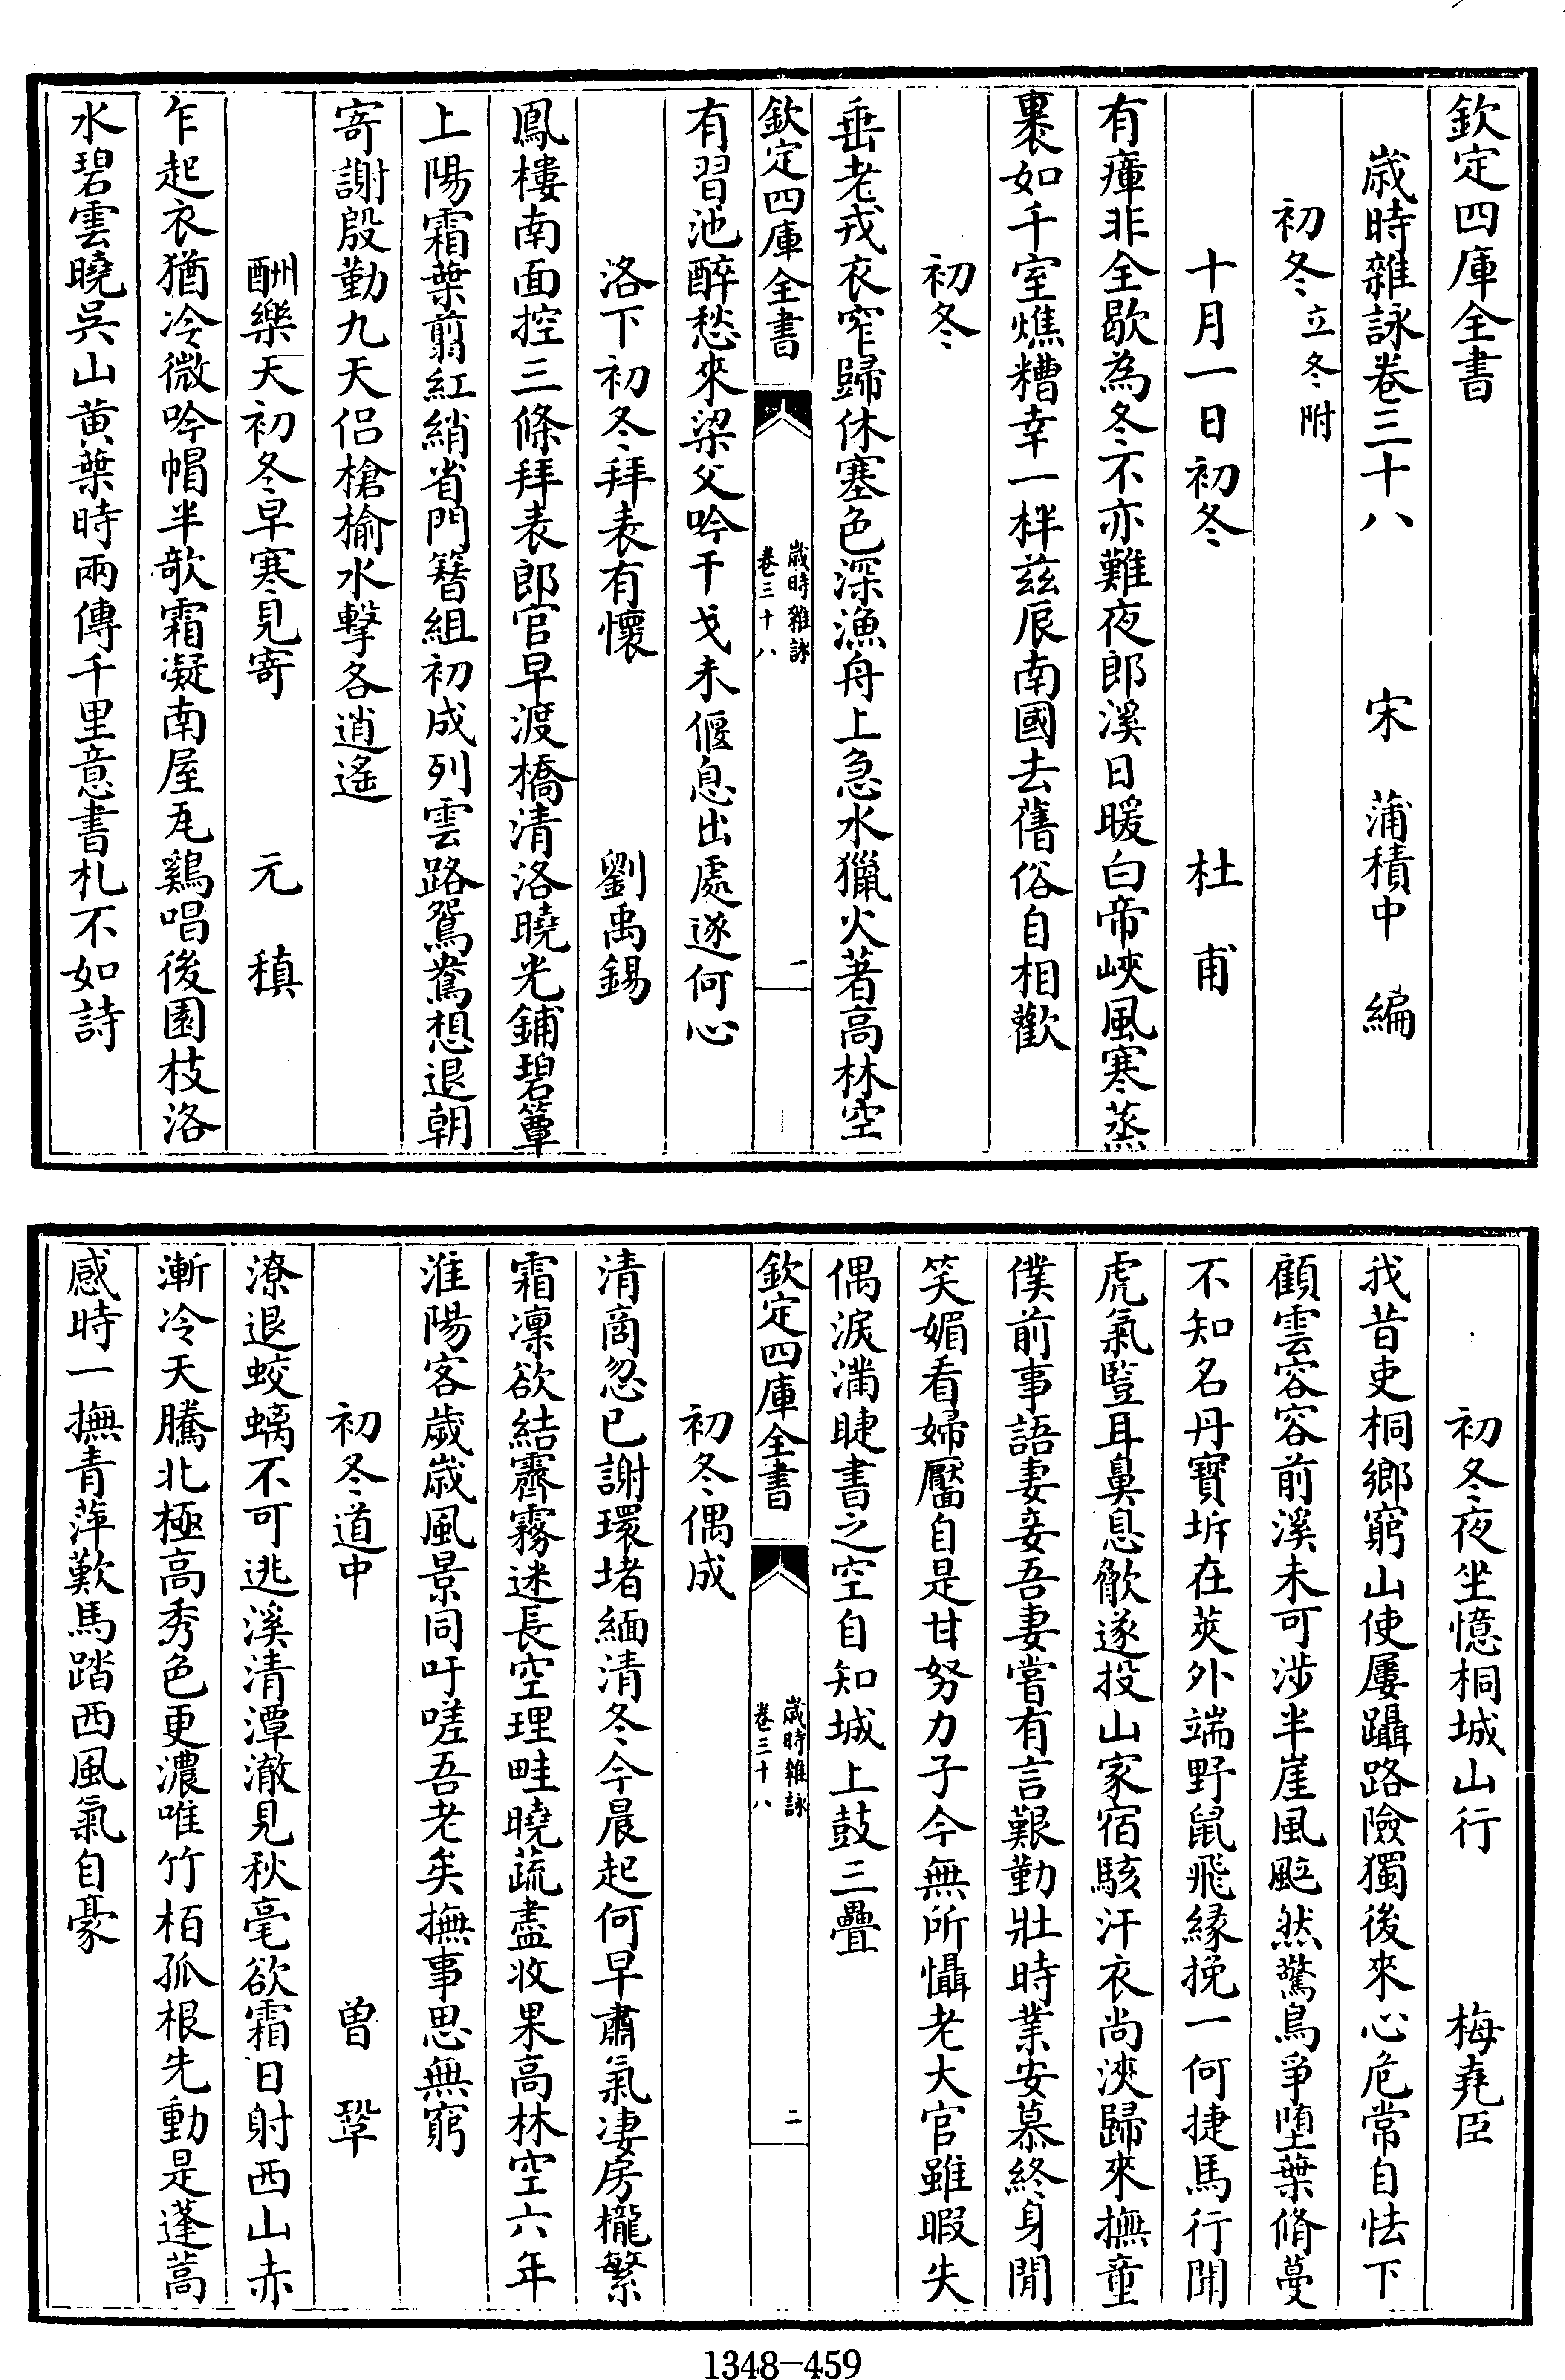 欽定四庫全書
歲時雜詠卷三十八　宋　蒲積中　編
初冬立冬附
十月一日初冬　杜　甫
有瘴非全歇為冬不亦難夜郎溪日暖白帝峽風寒蒸
裹如千室燋糟幸一柈兹辰南國去舊俗自相歡
初冬
垂老戎衣窄歸休塞色深漁舟上急水獵火著高林空
欽定四庫全書
歲時雜詠
卷三十八
一
有習池醉愁來梁父吟干戈未偃息出處遂何心
洛下初冬拜表有懷　劉禹錫
鳳樓南面控三條拜表郎官早渡橋清洛曉光鋪碧簟
上陽霜葉翦紅綃省門簪組初成列雲路鴛鴦想退朝
寄謝殷勤九天侣槍榆水擊各逍遙
酬樂天初冬早寒見寄　元　稹
乍起衣猶冷微吟帽半欹霜凝南屋瓦鷄唱後園枝洛
水碧雲曉吳山黃葉時兩傳千里意書札不如詩
初冬夜坐憶桐城山行　梅堯臣
我昔吏桐鄉窮山使屢躡路險獨後來心危常自怯下
顧雲容容前溪未可涉半崖風颭然驚鳥爭墮葉脩蔓
不知名丹寳坼在莢外端野鼠飛緣挽一何捷馬行聞
虎氣豎耳鼻息歙遂投山家宿駭汗衣尚浹歸來撫童
僕前事語妻妾吾妻嘗有言艱勤壯時業安慕終身閒
笑媚看婦靨自是甘努力于今無所懾老大官雖暇失
偶淚滿睫書之空自知城上鼓三疊
欽定四庫全書
歲時雜詠
卷三十八
二
初冬偶成
清商忽已謝環堵緬清冬今晨起何早肅氣凄房櫳繁
霜凜欲結霽霧迷長空理畦曉蔬盡收果高林空六年
淮陽客歲歲風景同吁嗟吾老矣撫事思無窮
初冬道中　曾　鞏
潦退蛟螭不可逃溪清潭澈見秋毫欲霜日射西山赤
漸冷天騰北極高秀色更濃唯竹栢孤根先動是蓬蒿
感時一撫青萍歎馬踏西風氣自豪
1348—459